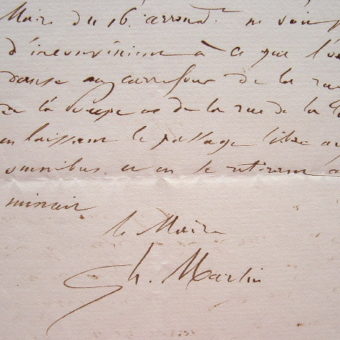 Maire du 16e arrondt ne voit p
d'inconvénient à ce que l'o
danse au carrefour de la rue
de la Pompe et de la rue de la To
en laissant le passage libre au
omnibus et en se retirant à
minuit
le Maire
Ch. Martin